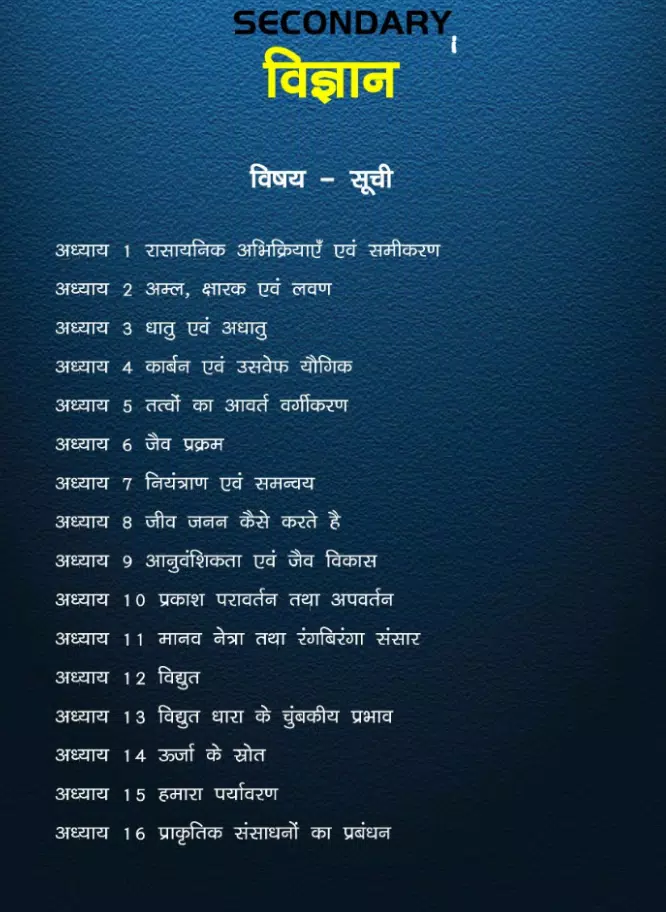 SECONDARY
विज्ञान
विषय - सूची
अध्याय 1 रासायनिक अभिक्रियाएँ एवं समीकरण
अध्याय 2 अम्ल, क्षारक एवं लवण
अध्याय 3 धातु एवं अधातु
अध्याय 4 कार्बन एवं उसवेफ यौगिक
अध्याय 5 तत्वों का आवर्त वर्गीकरण
अध्याय 6 जैव प्रक्रम
अध्याय 7 नियंत्राण एवं समन्वय
अध्याय 8 जीव जनन कैसे करते है
अध्याय 9 आनुवंशिकता एवं जैव विकास
अध्याय 10 प्रकाश परावर्तन तथा अपवर्तन
अध्याय 11 मानव नेत्रा तथा रंगबिरंगा संसार
अध्याय 12 विद्युत
अध्याय 13 विद्युत धारा के चुंबकीय प्रभाव
अध्याय 14 ऊर्जा के स्रोत
अध्याय 15 हमारा पर्यावरण
अध्याय 16 प्राकृतिक संसाधनों का प्रबंधन